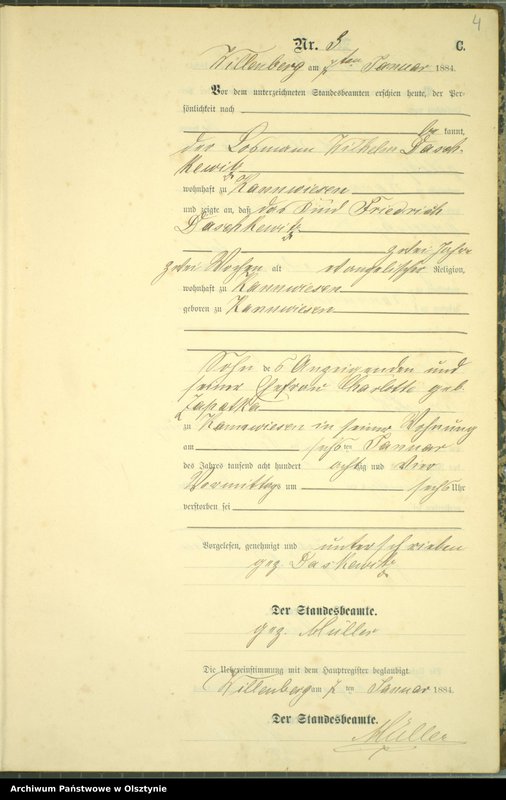 4
Nr. 3. C.
Willenberg am 7ten Januar 1884.
Vor dem unterzeichneten Standesbeamten erschien heute, der Per-
sönlichkeit nach
be kannt,
der Losmann Wilhelm Dasch-
kewitz
wohnhaft zu Kannwiesen
und zeigte an, daß das Kind Friedrich
Daschkewitz
zwei Jahre
zwei Wochen alt evangelischer Religion,
wohnhaft zu Kannwiesen
geboren zu Kannwiesen
Sohn des Anzeigenden und
seiner Ehefrau Charlotte geb.
Zapatka
zu Kannwiesen in seiner Wohnung
am sechsten Januar
des Jahres tausend acht hundert achtzig und vier
Vormittags um sechs Uhr
verstorben sei
Vorgelesen, genehmigt und unterschrieben
gez. Daskewitz
Der Standesbeamte.
gez. Müller
Die Uebereinstimmung mit dem Hauptregister beglaubigt.
Willenberg am 7ten Januar 1884.
Der Standesbeamte.
Müller
Archiwum Państwowe w Olsztynie